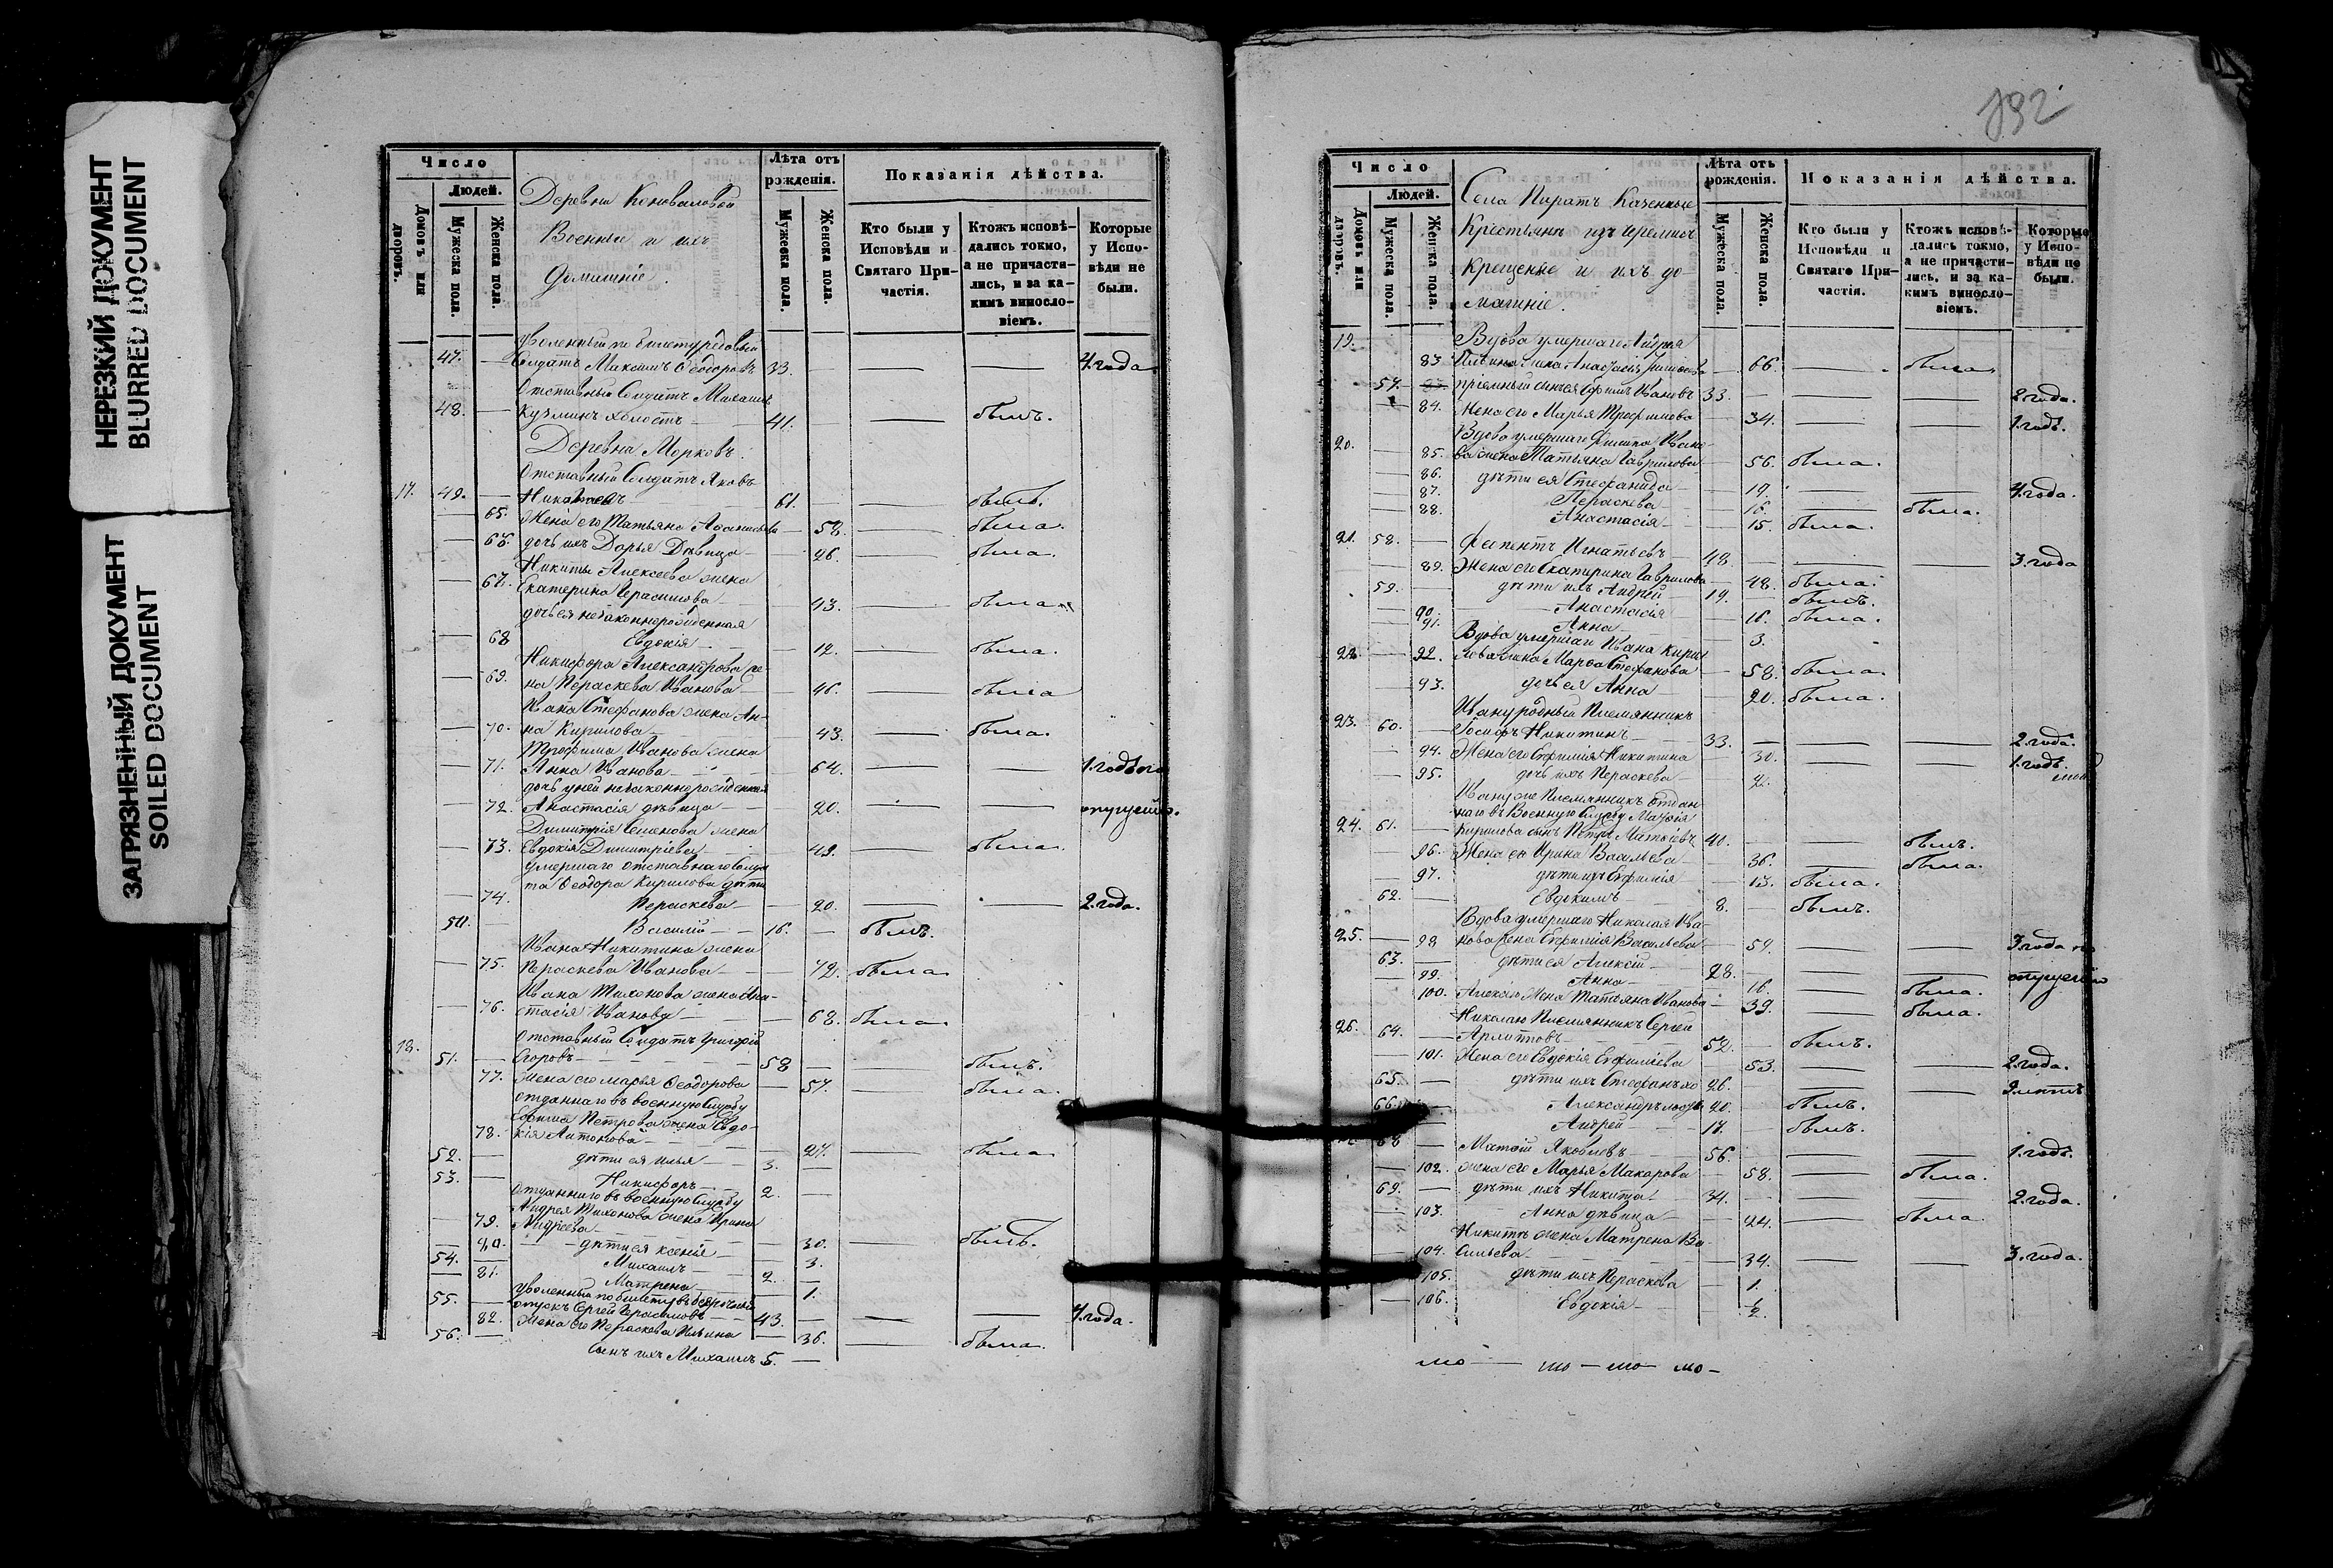 НЕРЕЗКИЙ ДОКУМЕНТ
BLURRED DOCUMENT
ЗАГРЯЗНЕННЫЙ ДОКУМЕНТ
SOILED DOCUMENT
Число
Людей.
Домовъ или дворовъ.
Мужеска пола.
Женска пола.
Деревни Коноваловой
Военные и ихъ
домашніе.
Лѣта отъ рожденія.
Мужеска пола.
Женска пола.
Показанія дѣйства.
Кто были у Исповѣди и Святаго Причастія.
Ктожъ исповѣдались токмо, а не причастились, и за какимъ винословіемъ.
Которые у Исповѣди не были.
47. Солдатъ Максимъ Ѳеодоровъ 33. 4. года
Отставный Солдатъ Михаилъ
48. Кузминъ холостъ 41. былъ.
Деревня Морковъ.
Отставный Солдатъ Яковъ
17. 49. 61. былъ.
65. Жена его Татьяна 58. была.
66. дочь их Дарья Дѣвица 26. была.
Никиты Алексеева жена
67. Екатерина Герасимова 43. была
дочь ея незаконнорожденная
68 Евдокія 12. была.
Никифора Александрова же-
69. на Параскева Иванова 46. была
Ивана Стефанова жена Ан-
70. на Кирилова 43. была.
Трофима Иванова жена
71. Анна Иванова 64. 1. годъ по
дочь у ней незаконнорожденная
72. Анастасія дѣвица 20. опущен.
Димитрія Семенова жена
73. Евдокія Димитріева 49. была.
Умершаго отставнаго Солда
та Ѳеодора Кирилова дѣти
74. Параскева 20. 2. года.
50. Василій 16. былъ.
Ивана Никитина жена
75. Параскева Иванова 72. была
Ивана Тихонова жена Ана-
76. стасія Иванова 68. была
18. Отставный Солдатъ Григорій
51. Егоровъ 58 былъ.
77. Жена его Марья Ѳеодорова 57. была.
Отданнаго въ военную Службу
Ефима Петрова жена Евдо-
78. кія Антонова 27. была
52. дѣти ея Илья 3.
53. Никифоръ 2.
Отданнаго въ военную Службу
Андрея Тихонова жена Ирина
79. Андреева 30. былъ.
дѣти ея Ксенія 3.
54. Михаилъ 2.
81. Матрена 1.
55. отпускъ Сергей Герасимовъ 43. 4. года.
82. Жена его Параскева Ильина 36. была.
56. Сынъ ихъ Михаилъ 5.
192
Число
Людей.
Домовъ или дворовъ.
Мужеска пола.
Женска пола.
Села Пиратъ Казенные
Крестьяне изъ Черемисъ
Крещеные и ихъ до-
машніе.
Лѣта отъ рожденія.
Мужеска пола.
Женска пола.
Показанія дѣйства.
Кто были у Исповѣди и Святаго Причастія.
Ктожъ исповѣдались токмо, а не причастились, и за какимъ винословіемъ.
Которые у Исповѣди не были.
19. Вдова умершаго Андрея
83 жена Анастасія 66. была
57. пріемный сынъ ея Ефимъ Ивановъ 33. 2. года.
84. Жена его Марья Трофимова 34. 1. годъ.
20. Вдова умершаго Филипа Ивано-
85. ва жена Татьяна Гаврилова 56. была.
86. дѣти ея Стефанида 19. 4. года.
87. Параскева 16. была.
88. Анастасія 15. была.
21. 58. Игнатьевъ 48. 3. года
89. Жена его Екатерина Гаврилова 48. была.
59. дѣти ихъ Андрей 19. былъ.
90. Анастасія 16. была.
91. Анна 3.
Вдова умершаго Ивана Кири-
22. 92. лова жена Марѳа Стефанова 58. была.
93. дочь ея Анна 20. была.
Ивану родный племянникъ
23. 60. Іосифъ Никитинъ 33. 2. года.
94. Жена его Евфимія Никитина 30. 1. годъ.
95. дочь ихъ Параскева 2.
Ивану же племянникъ отдан-
наго въ Военную Службу Матѳія
24. 61. Кирилова сынъ Петръ Матѳіевъ 40. былъ.
96. Жена его Ирина Васильева 36. была.
97. дѣти ихъ Евфимія 13. была.
62. Евдокимъ 8. былъ.
Вдова умершаго Николая Ива-
25. 98 нова жена Евфимія Васильева 59. 3. года по
63. дѣти ея Алексій 28. опущен
99. Анна 16. была.
100. Алексія жена Татьяна Иванова 39. была.
Николаю племянникъ Сергей
26. 64. Арлитовъ 52. былъ.
101. Жена его Евдокія Евфиміева 53. 2. года.
65. дѣти ихъ Стефанъ хо 26. 9. летъ
66. Александръ 20. былъ.
Андрей 17. былъ.
68 Матѳій Яковлевъ 56. 1. годъ.
102. жена его Марья Макарова 58. была.
69. дѣти ихъ Никита 34. 2. года.
103. Анна дѣвица 24. была.
Никиты жена Матрена Ва-
104. сильева 34. 3. года.
105. дѣти ихъ Параскева 1.
106. Евдокія ½.